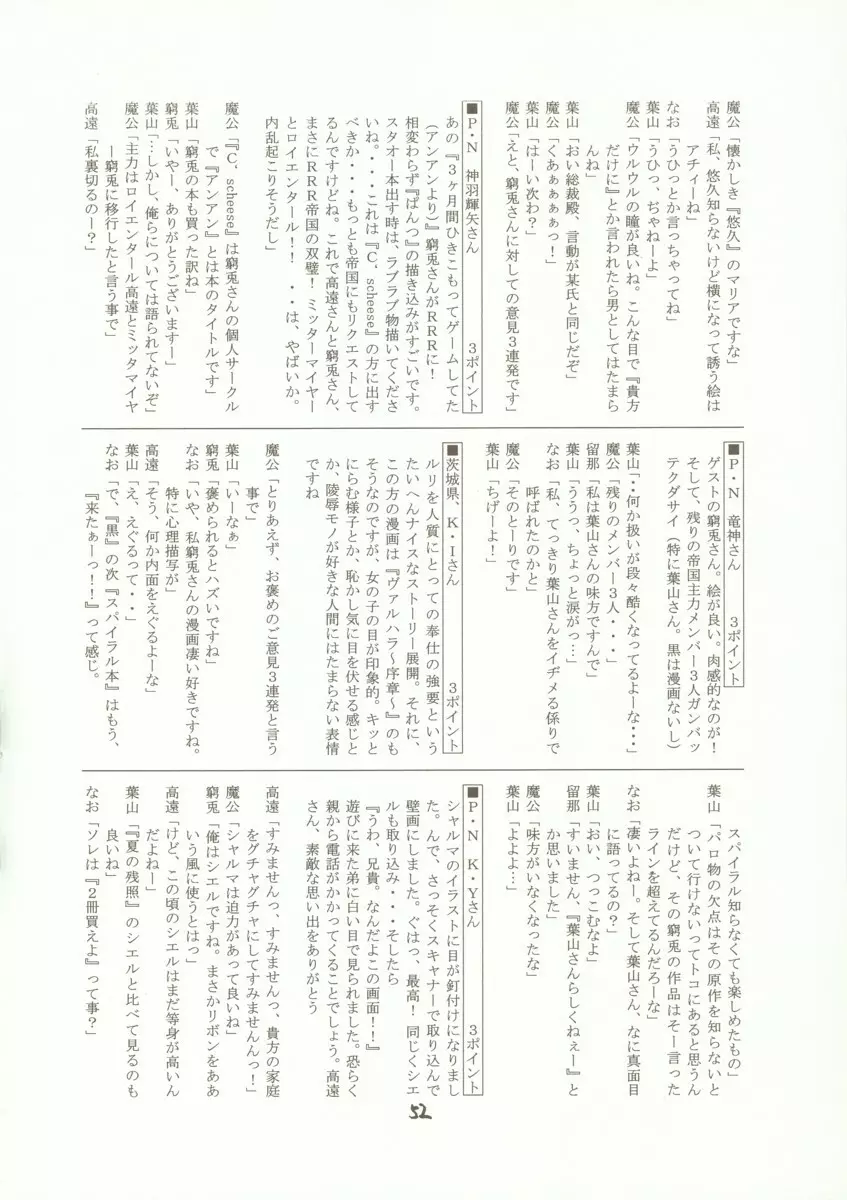 魔公「懐かしき『悠久』のマリアですな」
高遠「私、悠久知らないけど横になって誘う絵は
アチィーね」
なお「うひっとか言っちゃってね」
葉山「うひっ、ぢゃねーよ」
魔公「ウルウルの瞳が良いね。こんな目で『貴方
だけに』とか言われたら男としてはたまら
んね」
葉山「おい総裁殿、言動が某氏と同じだぞ」
魔公「くあぁぁぁぁっ！」
葉山「はーい次わ？」
魔公「えと、窮兎さんに対しての意見３連発です」
■Ｐ・Ｎ 神羽輝矢さん ３ポイント
あの『３ヶ月間ひきこもってゲームしてた
（アンアンより）』窮兎さんがＲＲＲに！
相変わらず『ぱんつ』の描き込みがすごいです。
スタオー本出す時は、ラブラブ物描いてくださ
いね。・・・これは『C、scheese』の方に出す
べきか・・・もっとも帝国にもリクエストして
るんですけどね。これで高遠さんと窮兎さん、
まさにＲＲＲ帝国の双璧！ミッターマイヤー
とロイエンタール！！・・は、やばいか。
内乱起こりそうだし」
魔公「『C、scheese』は窮兎さんの個人サークル
で『アンアン』とは本のタイトルです」
葉山「窮兎の本も買った訳ね」
窮兎「いやー、ありがとうございますー」
葉山「…しかし、俺らについては語られてないぞ」
魔公「主力はロイエンタール高遠とミッタマイヤ
ー窮兎に移行したと言う事で」
高遠「私裏切るのー？」
■Ｐ・Ｎ 竜神さん ３ポイント
ゲストの窮兎さん。絵が良い。肉感的なのが！
そして、残りの帝国主力メンバー３人ガンバッ
テクダサイ（特に葉山さん。黒は漫画ないし）
葉山「・・何か扱いが段々酷くなってるよーな・・」
魔公「残りのメンバー３人・・・」
留那「私は葉山さんの味方ですんで」
葉山「ううっ、ちょっと涙がっ…」
なお「私、てっきり葉山さんをイヂメる係りで
呼ばれたのかと」
魔公「そのとーりです」
葉山「ちげーよ！」
■茨城県、Ｋ・Ｉさん ３ポイント
ルリを人質にとっての奉仕の強要という
たいへんナイスなストーリー展開。それに、
この方の漫画は『ヴァルハラ～序章～』のも
そうなのですが、女の子の目が印象的。キッと
にらむ様子とか、恥かし気に目を伏せる感じと
か、陵辱モノが好きな人間にはたまらない表情
ですね
魔公「とりあえず、お褒めのご意見３連発と言う
事で」
葉山「いーなぁ」
窮兎「褒められるとハズいですね」
なお「いや、私窮兎さんの漫画凄い好きですね。
特に心理描写が」
高遠「そう、何か内面をえぐるよーな」
葉山「え、えぐるって・・」
なお「で、『黒』の次『スパイラル本』はもう、
『来たぁーっ！！』って感じ。
スパイラル知らなくても楽しめたもの」
葉山「パロ物の欠点はその原作を知らないと
ついて行けないってトコにあると思うん
だけど、その窮兎の作品はそー言った
ラインを超えてるんだろーな」
なお「凄いよねー。そして葉山さん、なに真面目
に語ってるの？」
葉山「おい、つっこむなよ」
留那「すいません、『葉山さんらしくねぇー』と
か思いました」
魔公「味方がいなくなったな」
葉山「よよよ…」
■Ｐ・Ｎ Ｋ・Ｙさん ３ポイント
シャルマのイラストに目が釘付けになりまし
た。んで、さっそくスキャナーで取り込んで
壁画にしました。ぐはっ、最高！同じくシエ
ルも取り込み・・・そしたら
『うわ、兄貴。なんだよこの画面！！』
遊びに来た弟に白い目で見られました。恐らく
親から電話がかかってくることでしょう。高遠
さん、素敵な思い出をありがとう
高遠「すみませんっ、すみませんっ、貴方の家庭
をグチャグチャにしてすみませんんっ！」
魔公「シャルマは迫力があって良いね」
窮兎「俺はシエルですね。まさかリボンをああ
いう風に使うとはっ」
高遠「けど、この頃のシエルはまだ等身が高いん
だよねー」
葉山「『夏の残照』のシエルと比べて見るのも
良いね」
なお「ソレは『２冊買えよ』って事？」
52